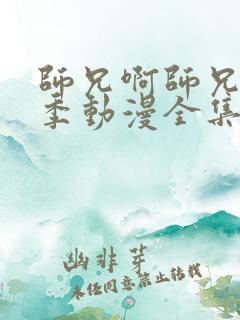 師兄啊師兄
季動漫全集
幽非芽
未经同意禁止转载